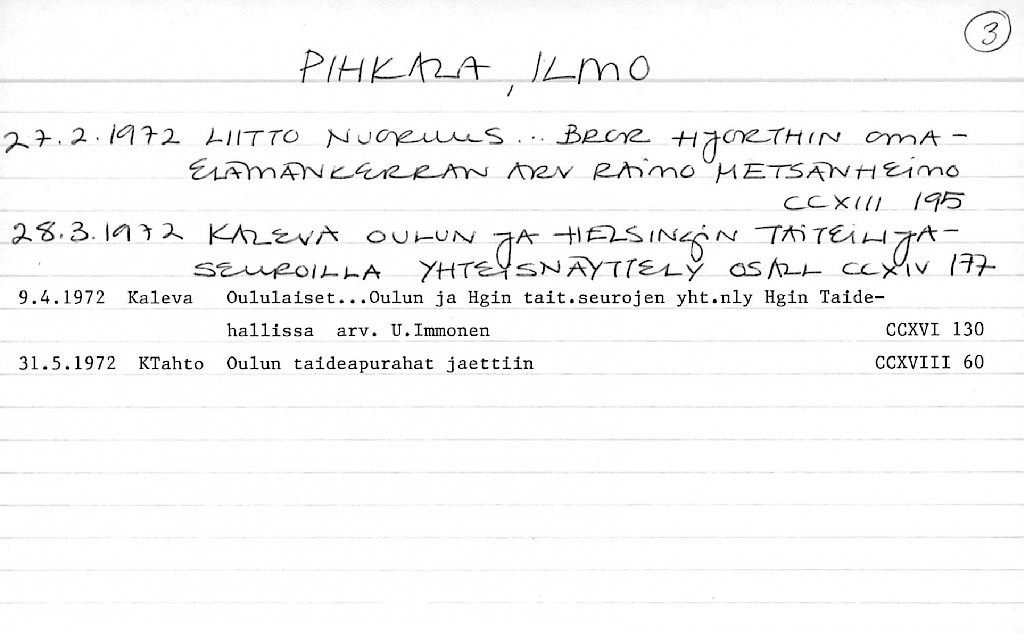 3
PIHKALA, ILMO
27.2.1972 LIITTO NUORUUS... BROR HJORTHIN OMA-
ELÄMÄNKERRAN ARV RAIMO METSÄNHEIMO
CCXIII 195
28.3.1972 KALEVA OULUN JA HELSINGIN TAITEILIJA-
SEUROILLA YHTEISNÄYTTELY OSALL CCXIV 177
9.4.1972 Kaleva Oululaiset...Oulun ja Hgin tait.seurojen yht.nly Hgin Taide-
hallissa arv. U.Immonen CCXVI 130
31.5.1972 KTahto Oulun taideapurahat jaettiin CCXVIII 60